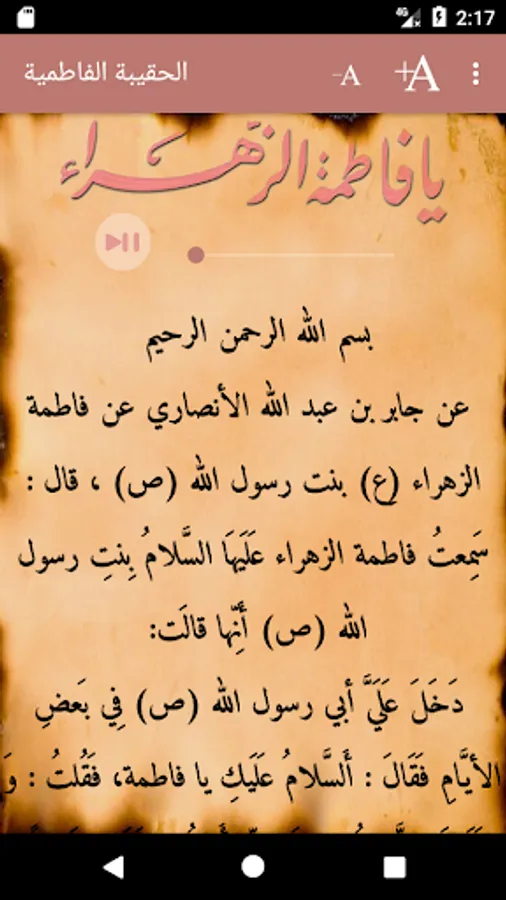 4G 2:17
الحقيبة الفاطمية -A +A
يا فاطمة الزهراء
بسم الله الرحمن الرحيم
عن جابر بن عبد الله الأنصاري عن فاطمة
الزهراء (ع) بنت رسول الله (ص) ، قال :
سَمِعتُ فاطمة الزهراء عَلَيهَا السَّلامُ بِنتِ رسول
الله (ص) أَنّها قالَت:
دَخَلَ عَلَيَّ أبي رسول الله (ص) فِي بَعضِ
الأيَّامِ فَقَالَ : أَلسَّلامُ عَلَيكِ يا فاطمة، فَقُلتُ : وَ